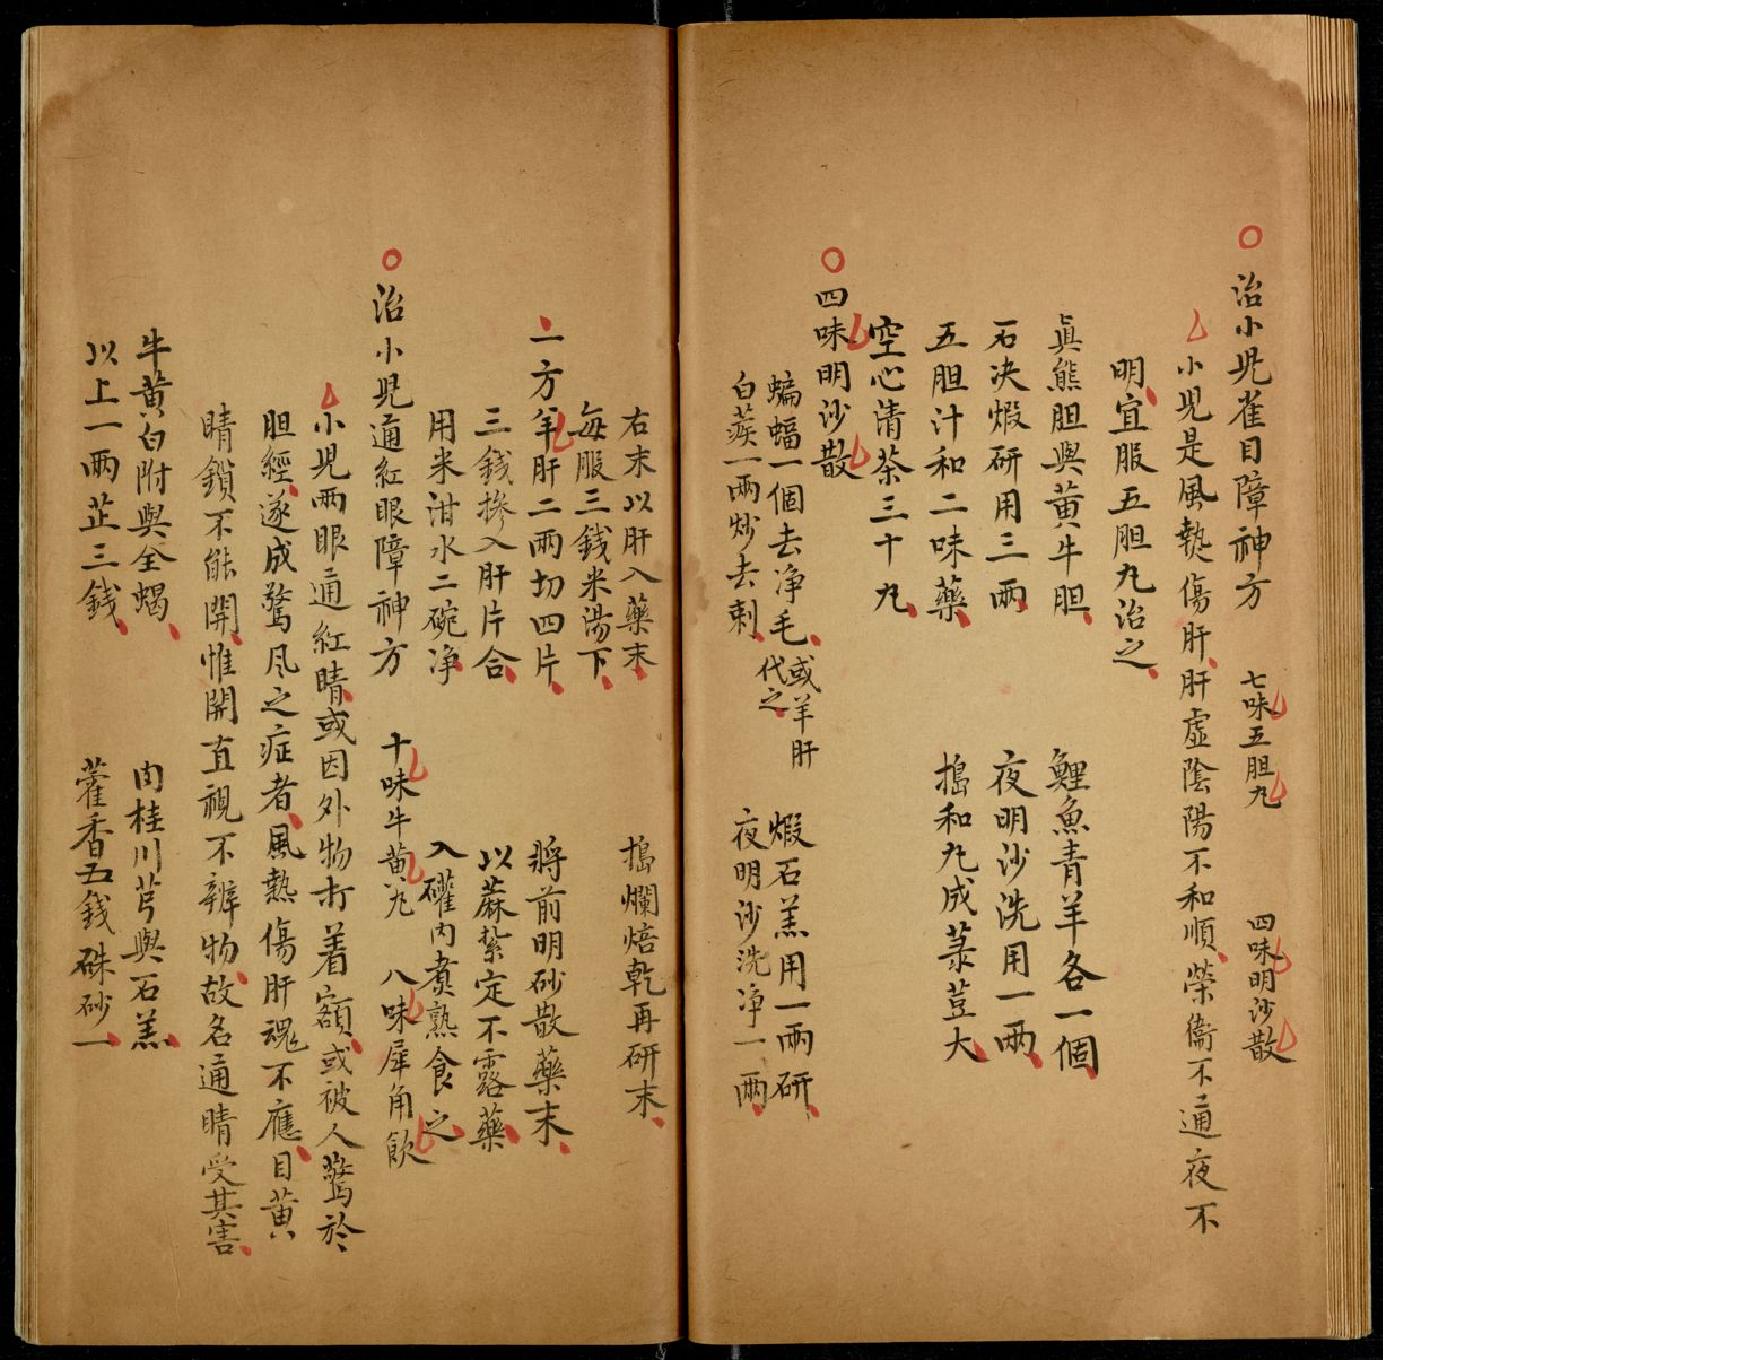 治小児雀目障神方 七味五胆丸 四味明沙散
小児是風熱傷肝肝虛陰陽不和順榮衞不通夜不
明宜服五胆丸治之
真熊胆與黄牛胆 鯉魚青羊各一個
石决煆研用三兩 夜明沙洗用一兩
五胆汁和二味藥 搗和丸成菉荳大
空心清茶三十丸
四味明沙散
蝙蝠一個去净毛或羊肝代之 煆石羔用一兩研
白蒺一兩炒去刺 夜明沙洗净一兩
右末以肝入藥末 搗爛焙乾再研末
每服三錢米湯下
一方羊肝二兩切四片 將前明砂散藥末
三錢摻入肝片合 以蔴紮定不露藥
用米泔水二碗净 入礶内煮熟食之
治小児通紅眼障神方 十味牛黄丸 八味犀角飲
小児兩眼通紅睛或因外物打着額或被人驚於
胆經遂成驚凨之症者風熱傷肝魂不應目黄
睛鎖不能開惟開直視不辨物故名通睛受其害
牛黄白附與全蝎 肉桂川芎與石羔
以上一兩芷三錢 藿香五錢硃砂一